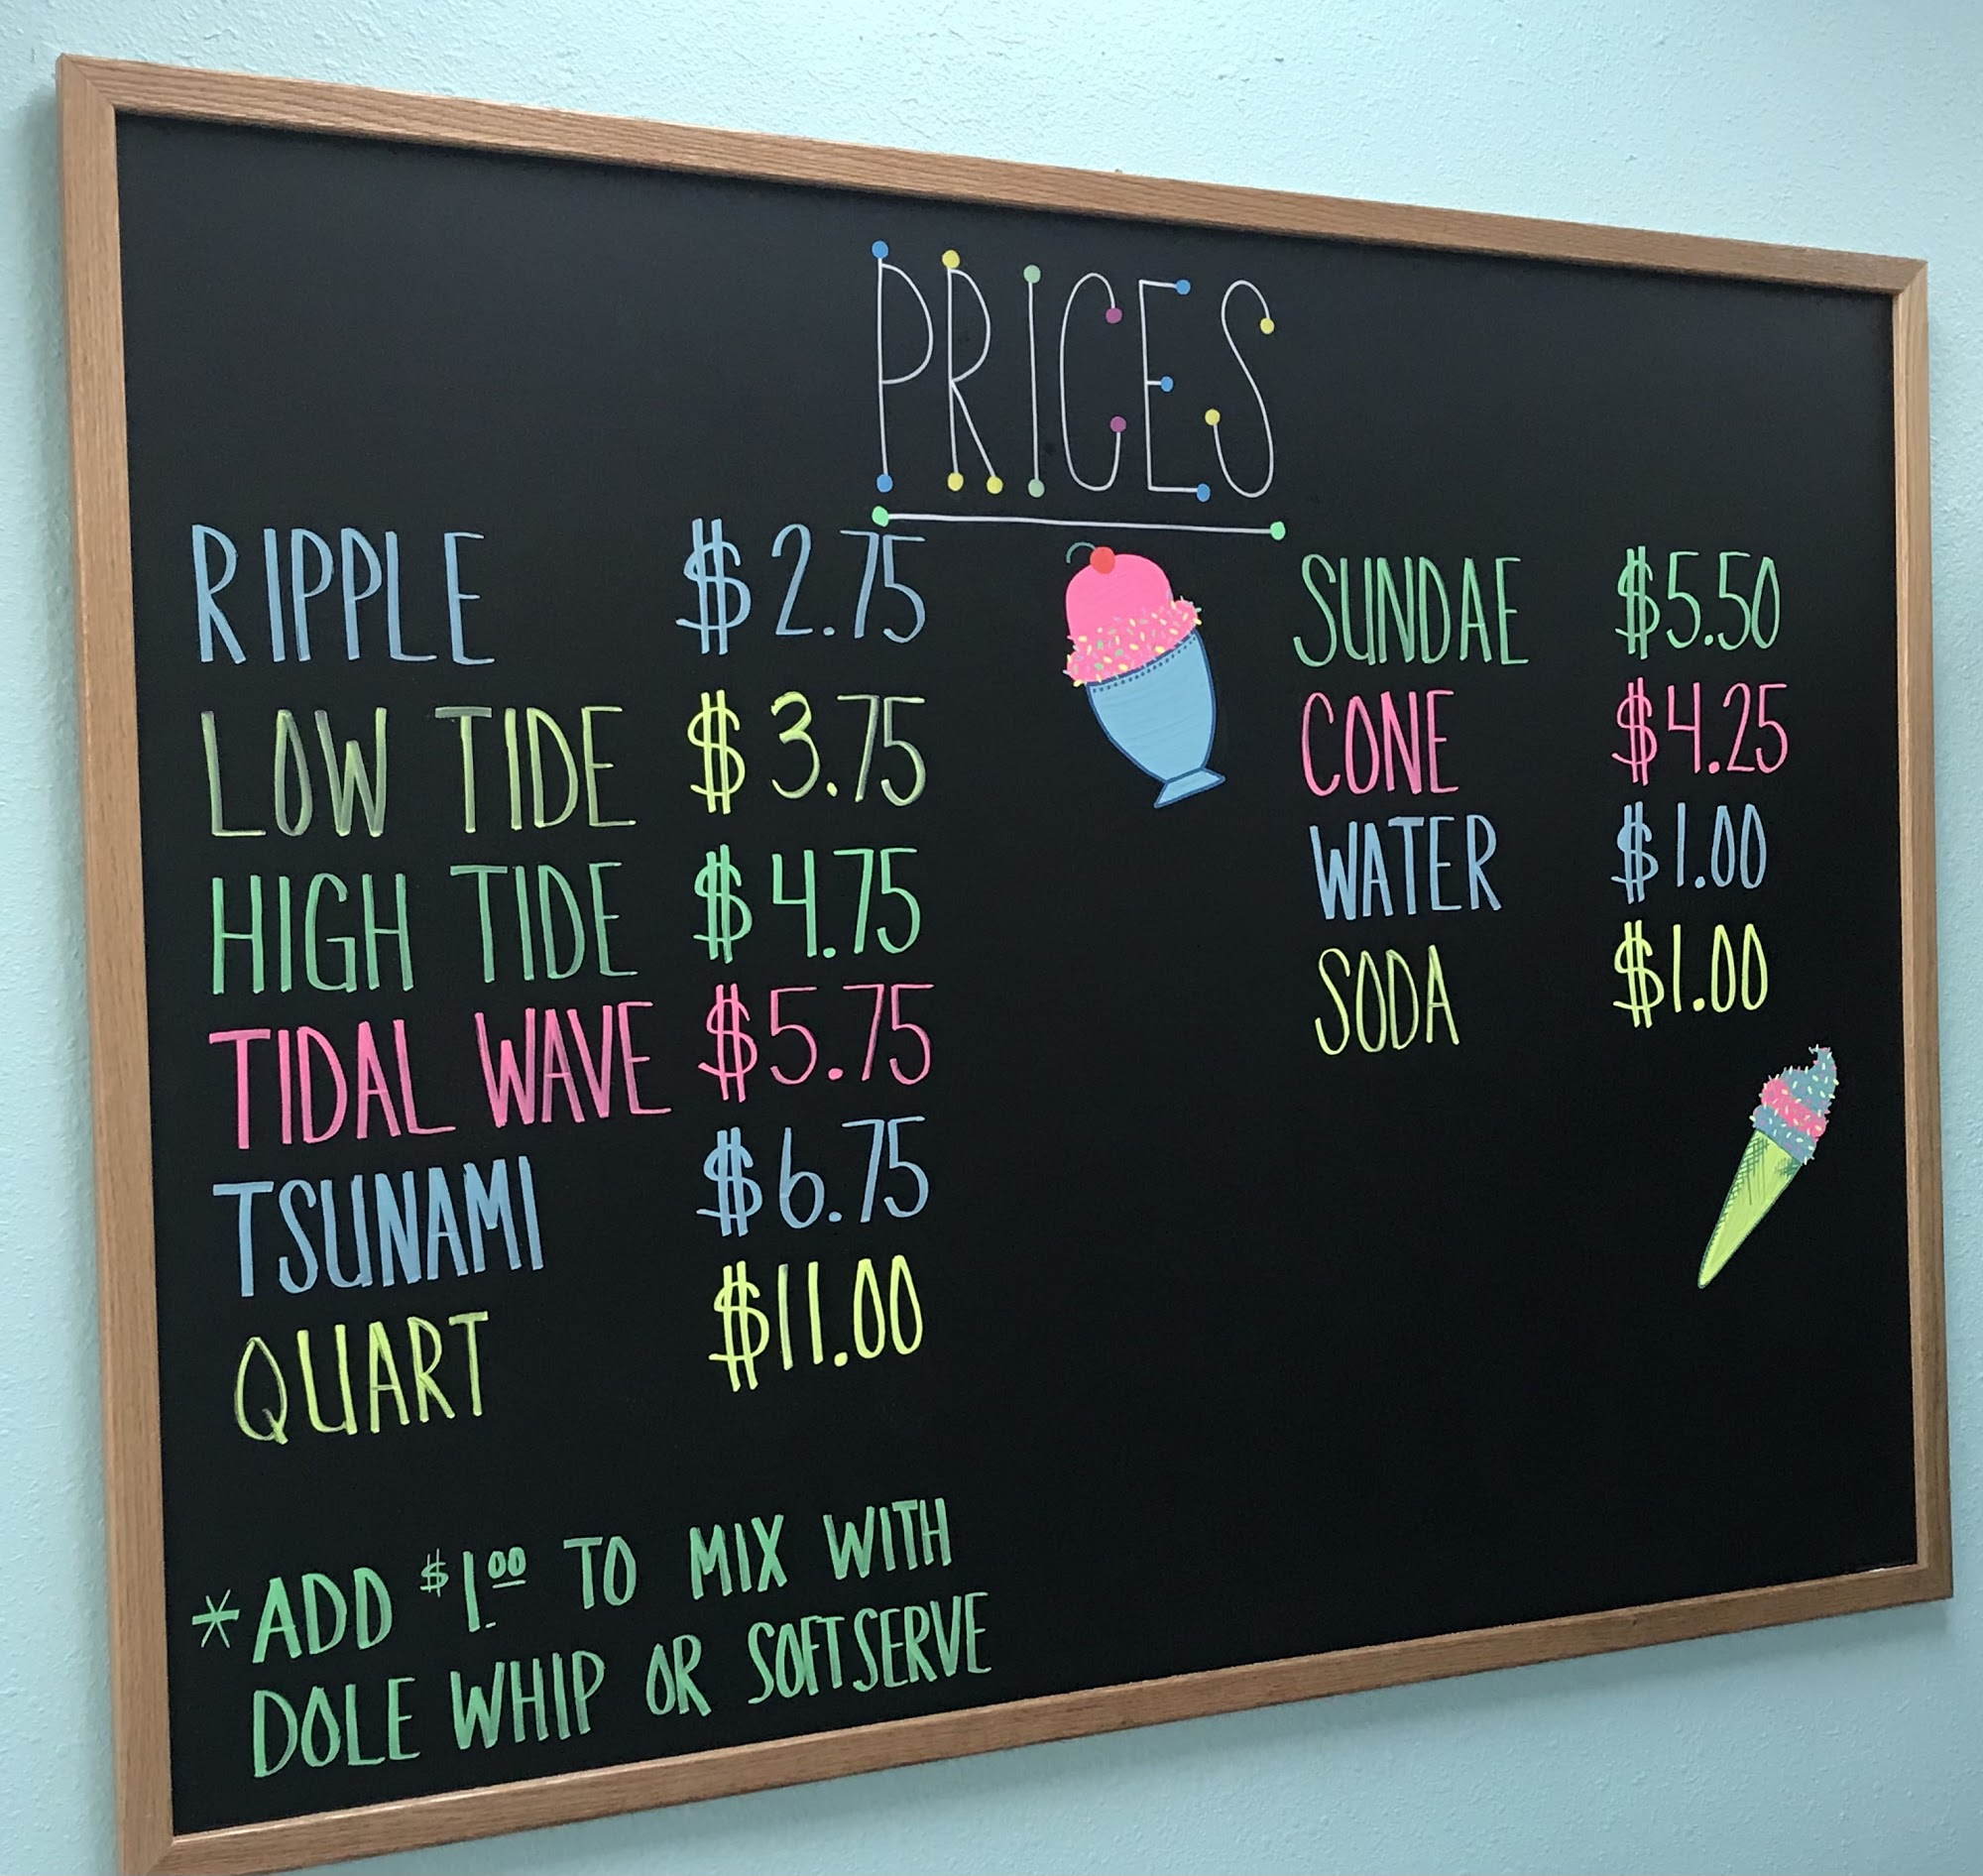 PRICES
RIPPLE $2.75
LOW TIDE $3.75
HIGH TIDE $4.75
TIDAL WAVE $5.75
TSUNAMI $6.75
QUART $11.00
SUNDAE $5.50
CONE $4.25
WATER $1.00
SODA $1.00
*ADD $1.00 TO MIX WITH
DOLE WHIP OR SOFTSERVE